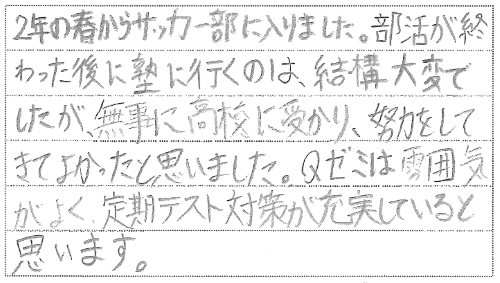 2年の春からサッカー部に入りました。部活が終
わった後に塾に行くのは、結構大変で
したが、無事に高校に受かり、努力をして
きてよかったと思いました。Qゼミは雰囲気
がよく、定期テスト対策が充実していると
思います。